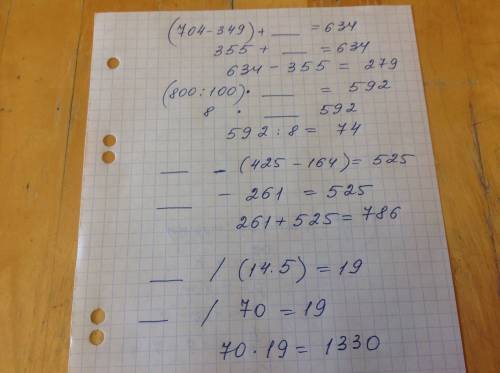 (704-349)+ __ = 634
355 + __ = 634
634 - 355 = 279
(800:100)· __ = 592
8 · __ 592
592 : 8 = 74
__ - (425-164)= 525
__ - 261 = 525
261 + 525 = 786
__ / (14·5) = 19
__ / 70 = 19
70 · 19 = 1330